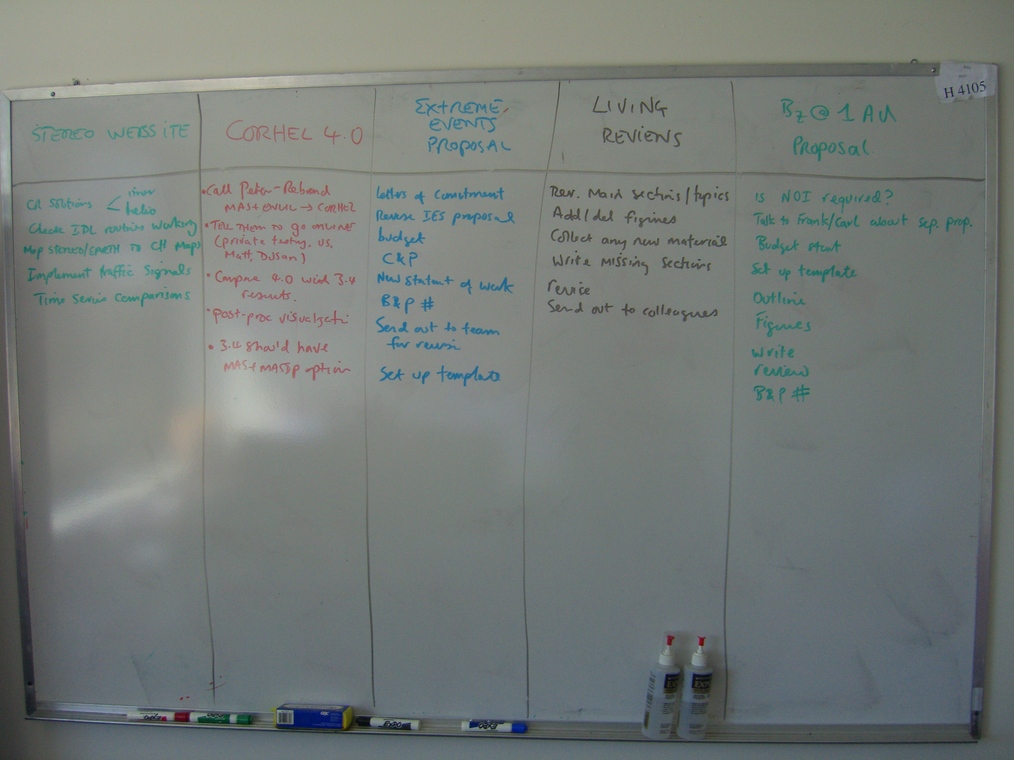 H 4105
STEREO WEBSITE
CR solutions < inner
helio
Check IDL routines working
Map STEREO/EARTH TO CH Maps
Implement traffic Signals
Time Series Comparisons
CORHEL 4.0
• Call Peter-
MAS+ENLIL → CORHEL
• TELL THEM TO go on
(private testing, vs.
Matt, Dusan)
• Compare 4.0 with 3.4
results.
• Post-proc visualizati
• 3.4 should have
MAS+MASIP option
EXTREME
EVENTS
PROPOSAL
Letters of Comitment
Reverse IES proposal
budget
C&P
New statmt of work
B&P #
Send out to team
for
Set up template
LIVING
REVIEWS
Rev. Main sections/topics
Add/del figures
Collect any new material
Write Missing Sections
revise
Send out to colleagues
Bz @ 1 AU
PROPOSAL
Is NOI required?
Talk to Frank/Carl about Sep. prop.
Budget start
Set up template
Outline
Figures
Write
review
B&P #
EXPO